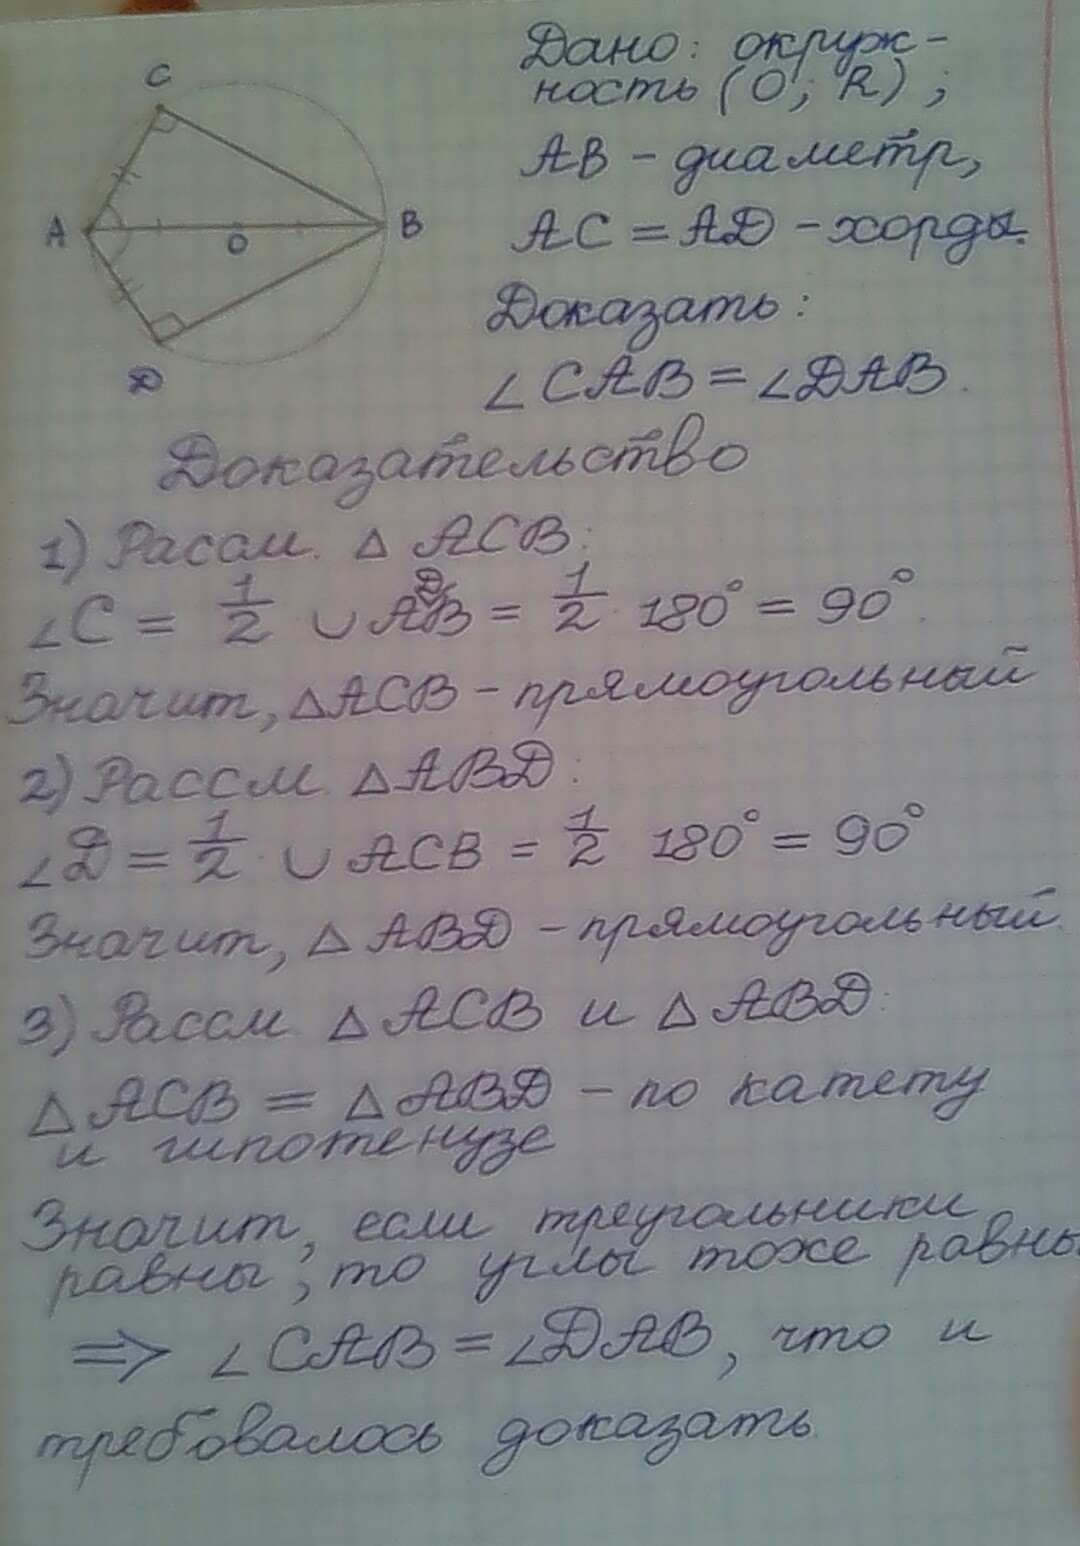 Дано: окруж-
ность (O; R);
AB - диаметр,
AC = AD - хорды.
Доказать:
∠CAB = ∠DAB.
C
A
O
B
D
Доказательство
1) Рассм. △ ACB:
∠C = 1/2 ∪ ADB = 1/2 · 180° = 90°.
Значит, △ACB - прямоугольный
2) Рассм. △ABD:
∠D = 1/2 · ∪ ACB = 1/2 · 180° = 90°
Значит, △ ABD - прямоугольный.
3) Рассм. △ ACB и △ ABD:
△ ACB = △ ABD - по катету
и гипотенузе
Значит, если треугольники
равны, то углы тоже равны
⇒ ∠CAB = ∠DAB, что и
требовалось доказать.